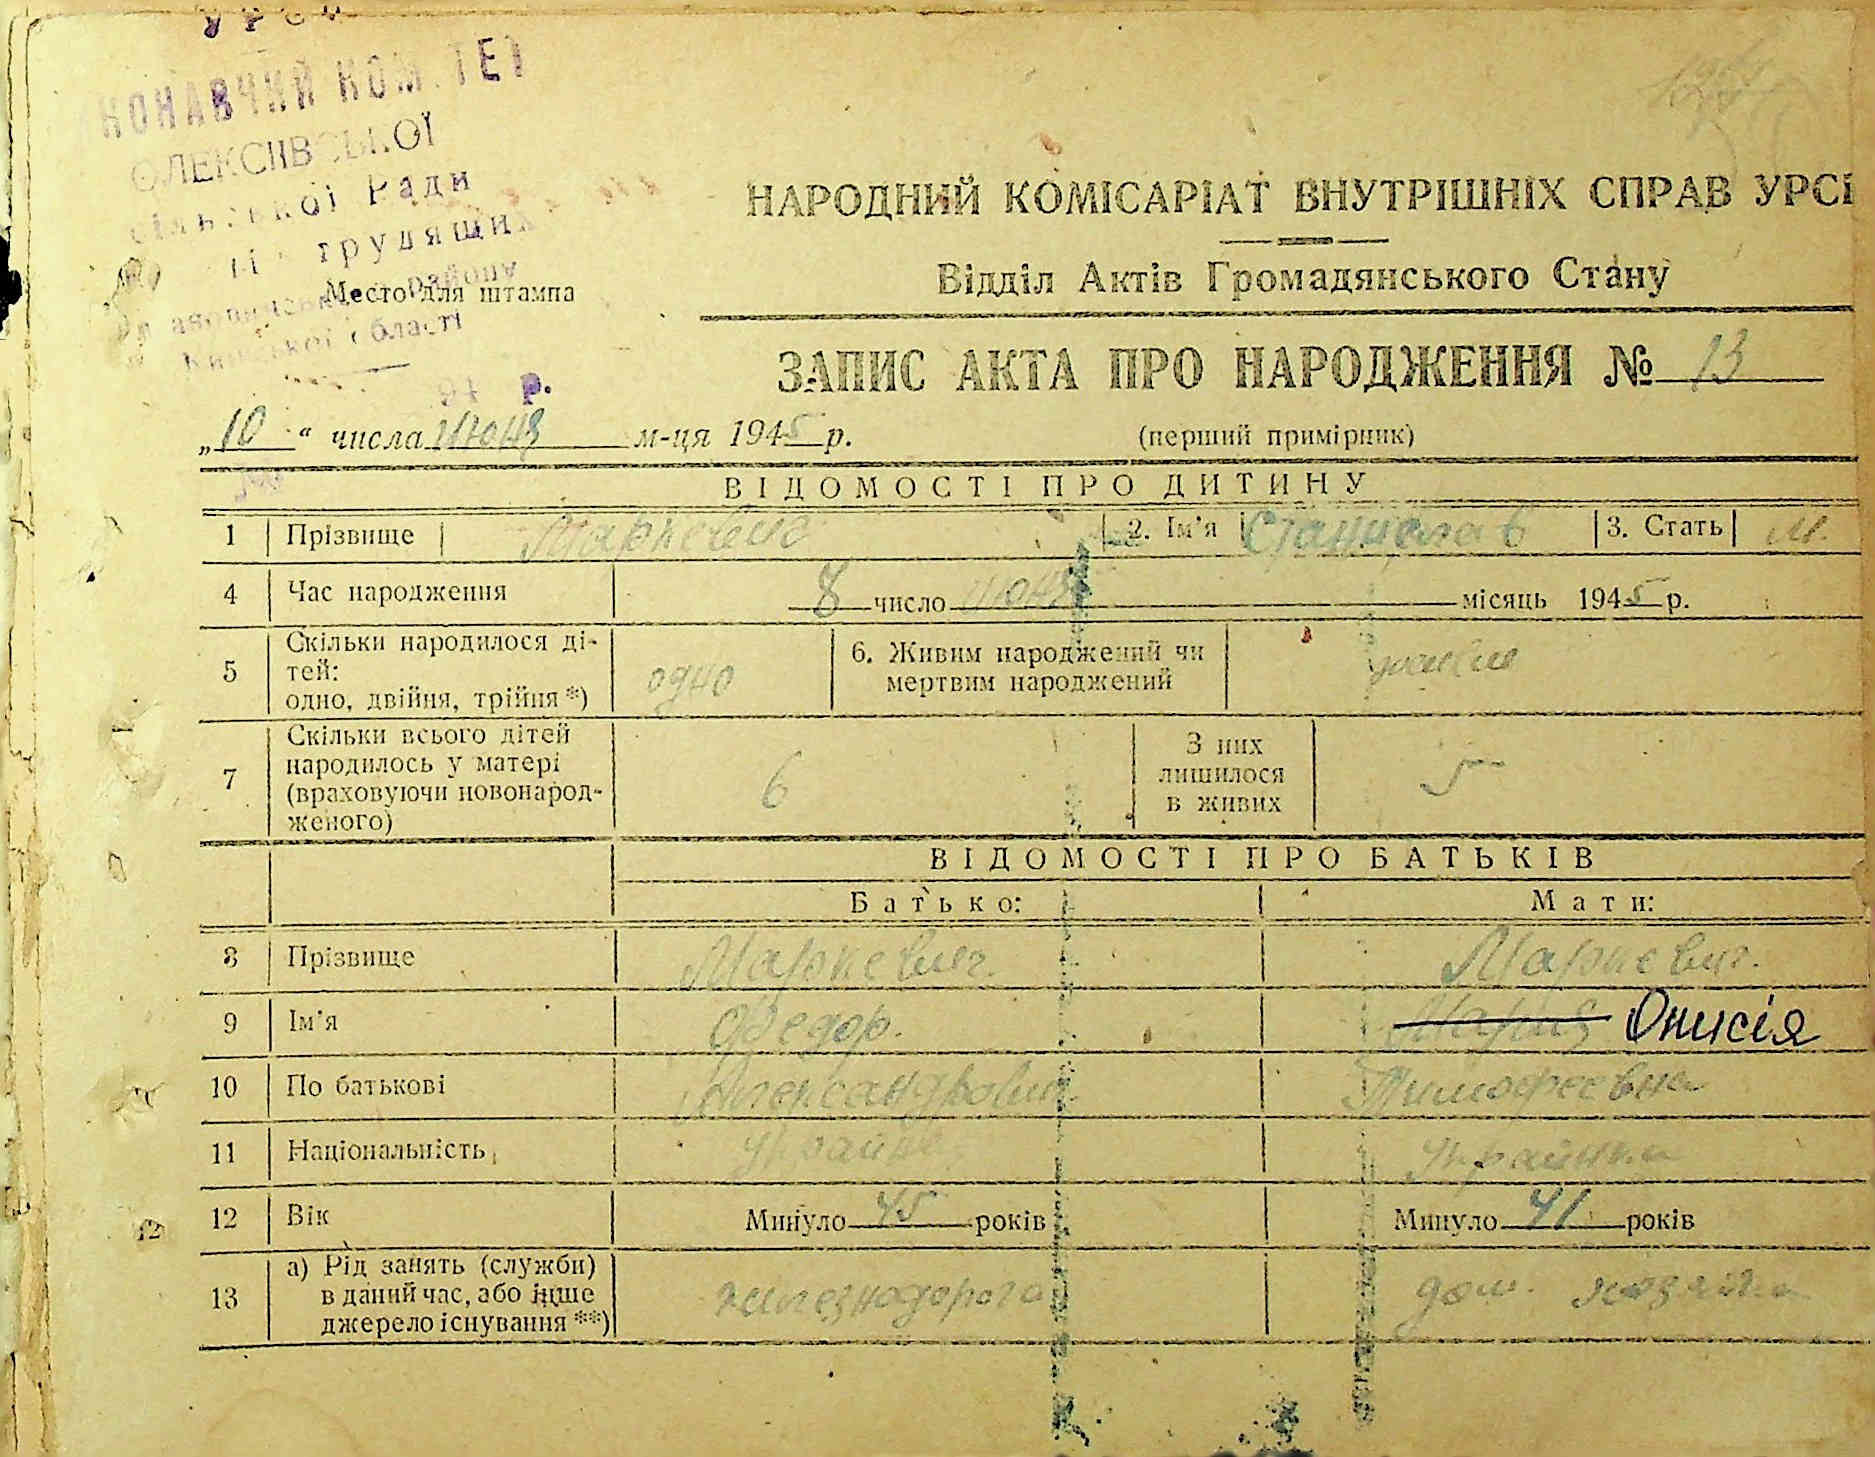 УРСР
КОМІТЕТ
ОЛЕКСІЇВСЬКОЇ
сільської Ради
трудящих
району
Место для штампа
Київської області
194 р.
НАРОДНИЙ КОМІСАРІАТ ВНУТРІШНІХ СПРАВ УРСР
Відділ Актів Громадянського Стану
ЗАПИС АКТА ПРО НАРОДЖЕННЯ № 13
„10“ числа июня м-ця 1945 р. (перший примірник)
ВІДОМОСТІ ПРО ДИТИНУ
1 Прізвище Маркевич 2. Ім’я Станислав 3. Стать м.
4 Час народження 8 число июня місяць 1945 р.
5 Скільки народилося дітей: одно, двійня, трійня *) одно 6. Живим народжений чи мертвим народжений
7 Скільки всього дітей народилось у матері (враховуючи новонародженого) 6 З них лишилося в живих 5
ВІДОМОСТІ ПРО БАТЬКІВ
Батько: Мати:
8 Прізвище Маркевич. Маркевич.
9 Ім’я Федор. Мария Онисія
10 По батькові Александрович. Тимофеевна
11 Національність Украинка
12 Вік Минуло 45 років Минуло 41 років
13 а) Рід занять (служби) в даний час, або інше джерело існування **) дом. хозяйка